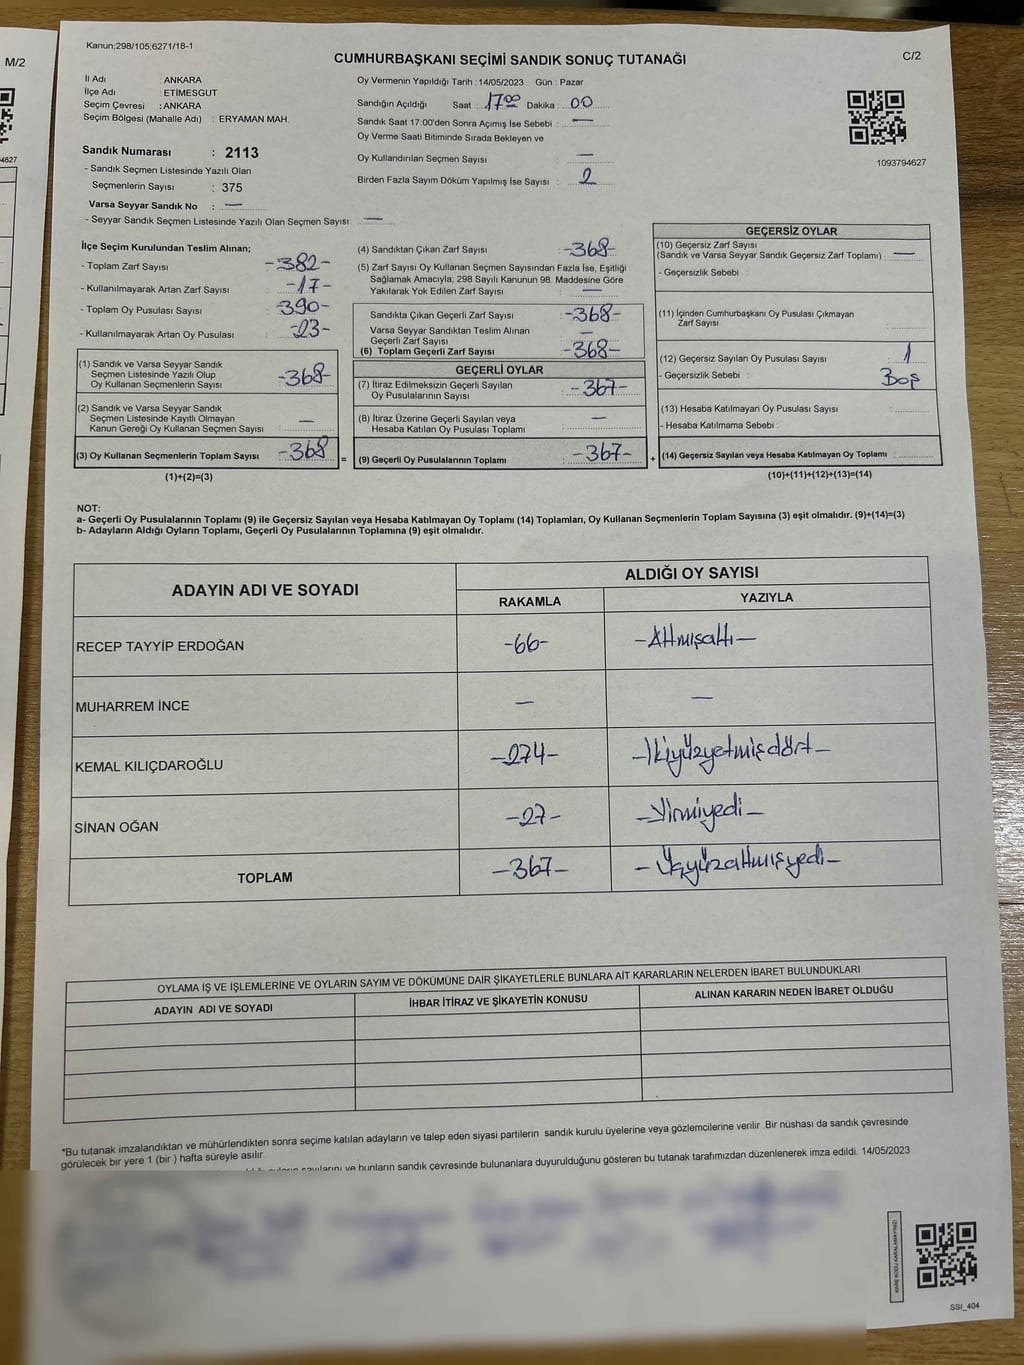 M/2
4627
Kanun;298/105;6271/18-1
C/2
CUMHURBAŞKANI SEÇİMİ SANDIK SONUÇ TUTANAĞI
İl Adı : ANKARA
İlçe Adı : ETİMESGUT
Seçim Çevresi : ANKARA
Seçim Bölgesi (Mahalle Adı) : ERYAMAN MAH.
Sandık Numarası : 2113
- Sandık Seçmen Listesinde Yazılı Olan
Seçmenlerin Sayısı : 375
Varsa Seyyar Sandık No : —
- Seyyar Sandık Seçmen Listesinde Yazılı Olan Seçmen Sayısı: —
Oy Vermenin Yapıldığı Tarih :14/05/2023 Gün : Pazar
Sandığın Açıldığı Saat : 17:00 Dakika : 00
Sandık Saat 17:00'den Sonra Açımış İse Sebebi : —
Oy Verme Saati Bitiminde Sırada Bekleyen ve
Oy Kullandırılan Seçmen Sayısı : —
Birden Fazla Sayım Döküm Yapılmış İse Sayısı : 2
1093794627
İlçe Seçim Kurulundan Teslim Alınan;
- Toplam Zarf Sayısı : -382-
- Kullanılmayarak Artan Zarf Sayısı : -17-
- Toplam Oy Pusulası Sayısı : -390-
- Kullanılmayarak Artan Oy Pusulası : -23-
(1) Sandık ve Varsa Seyyar Sandık
Seçmen Listesinde Yazılı Olup
Oy Kullanan Seçmenlerin Sayısı : -368-
(2) Sandık ve Varsa Seyyar Sandık
Seçmen Listesinde Kayıtlı Olmayan
Kanun Gereği Oy Kullanan Seçmen Sayısı : —
(3) Oy Kullanan Seçmenlerin Toplam Sayısı : -368- =
(1)+(2)=(3)
(4) Sandıktan Çıkan Zarf Sayısı : -368-
(5) Zarf Sayısı Oy Kullanan Seçmen Sayısından Fazla İse, Eşitliği
Sağlamak Amacıyla; 298 Sayılı Kanunun 98. Maddesine Göre
Yakılarak Yok Edilen Zarf Sayısı : —
Sandıkta Çıkan Geçerli Zarf Sayısı : -368-
Varsa Seyyar Sandıktan Teslim Alınan
Geçerli Zarf Sayısı : —
(6) Toplam Geçerli Zarf Sayısı : -368-
GEÇERLİ OYLAR
(7) İtiraz Edilmeksizin Geçerli Sayılan
Oy Pusulalarının Sayısı : -367-
(8) İtiraz Üzerine Geçerli Sayılan veya
Hesaba Katılan Oy Pusulası Toplamı : —
(9) Geçerli Oy Pusulalarının Toplamı : -367- +
GEÇERSİZ OYLAR
(10) Geçersiz Zarf Sayısı
(Sandık ve Varsa Seyyar Sandık Geçersiz Zarf Toplamı) : —
- Geçersizlik Sebebi :
(11) İçinden Cumhurbaşkanı Oy Pusulası Çıkmayan
Zarf Sayısı :
(12) Geçersiz Sayılan Oy Pusulası Sayısı : 1
- Geçersizlik Sebebi : Boş
(13) Hesaba Katılmayan Oy Pusulası Sayısı :
- Hesaba Katılmama Sebebi :
(14) Geçersiz Sayılan veya Hesaba Katılmayan Oy Toplamı :
(10)+(11)+(12)+(13)=(14)
NOT:
a- Geçerli Oy Pusulalarının Toplamı (9) ile Geçersiz Sayılan veya Hesaba Katılmayan Oy Toplamı (14) Toplamları, Oy Kullanan Seçmenlerin Toplam Sayısına (3) eşit olmalıdır. (9)+(14)=(3)
b- Adayların Aldığı Oyların Toplamı, Geçerli Oy Pusulalarının Toplamına (9) eşit olmalıdır.
ADAYIN ADI VE SOYADI ALDIĞI OY SAYISI
RAKAMLA YAZIYLA
RECEP TAYYİP ERDOĞAN -66- -Altmışaltı-
MUHARREM İNCE — —
KEMAL KILIÇDAROĞLU -274- -İkiyüzyetmişdört-
SİNAN OĞAN -27- -Yirmiyedi-
TOPLAM -367- -Üçyüzaltmışyedi-
OYLAMA İŞ VE İŞLEMLERİNE VE OYLARIN SAYIM VE DÖKÜMÜNE DAİR ŞİKAYETLERLE BUNLARA AİT KARARLARIN NELERDEN İBARET BULUNDUKLARI
ADAYIN ADI VE SOYADI İHBAR İTİRAZ VE ŞİKAYETİN KONUSU ALINAN KARARIN NEDEN İBARET OLDUĞU
*Bu tutanak imzalandıktan ve mühürlendikten sonra seçime katılan adayların ve talep eden siyasi partilerin sandık kurulu üyelerine veya gözlemcilerine verilir .Bir nüshası da sandık çevresinde
görülecek bir yere 1 (bir ) hafta süreyle asılır.
sayılarını ve bunların sandık çevresinde bulunanlara duyurulduğunu gösteren bu tutanak tarafımızdan düzenlenerek imza edildi. 14/05/2023
SSİ_404